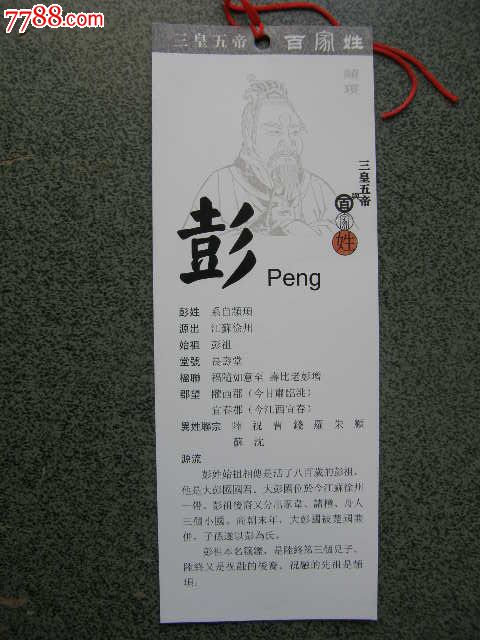 7788.com
三皇五帝 百家姓
顓頊
三皇五帝
百家姓
彭
Peng
彭姓 系自顓頊
源出 江蘇徐州
始祖 彭祖
堂號 長壽堂
楹聯 福隨如意至 壽比老彭增
郡望 隴西郡（今甘肅臨洮）
宜春郡（今江西宜春）
異姓聯宗 陸 祝 曹 錢 羅 朱 顧
蘇 沈
源流
彭姓始祖相傳是活了八百歲的彭祖，
他是大彭國國君，大彭國位於今江蘇徐州
一帶。彭祖後裔又分出豕韋、諸稽、舟人
三個小國。商朝末年，大彭國被楚國兼
併，子孫遂以彭為氏。
彭祖本名籛鏗，是陸終第三個兒子，
陸終又是祝融的後裔，祝融的先祖是顓
頊。